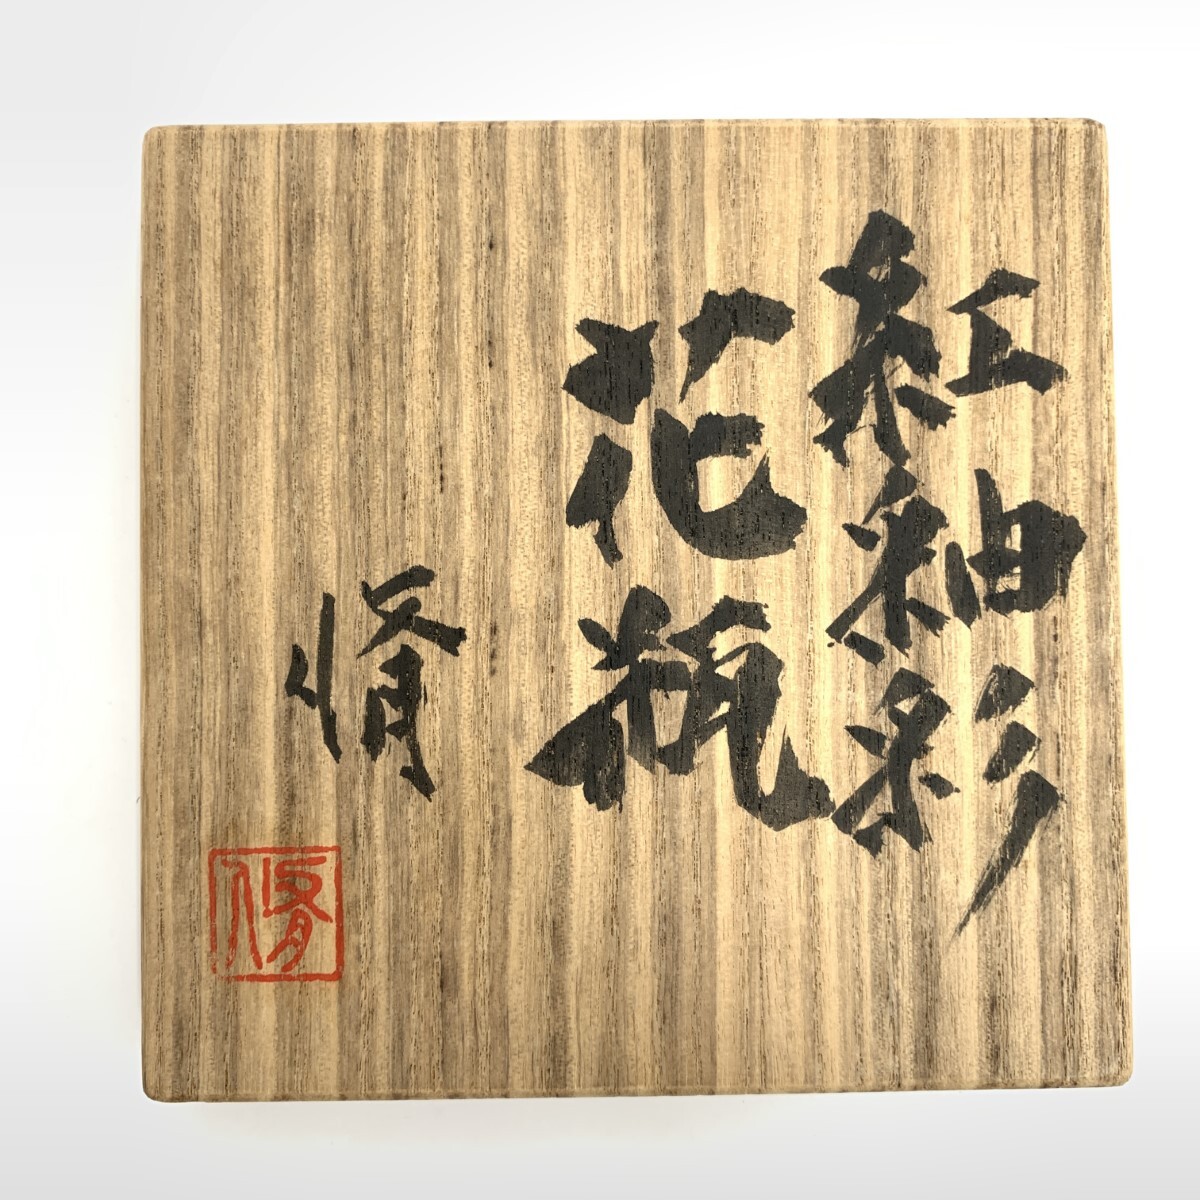 紅釉彩
花瓶
脩
脩